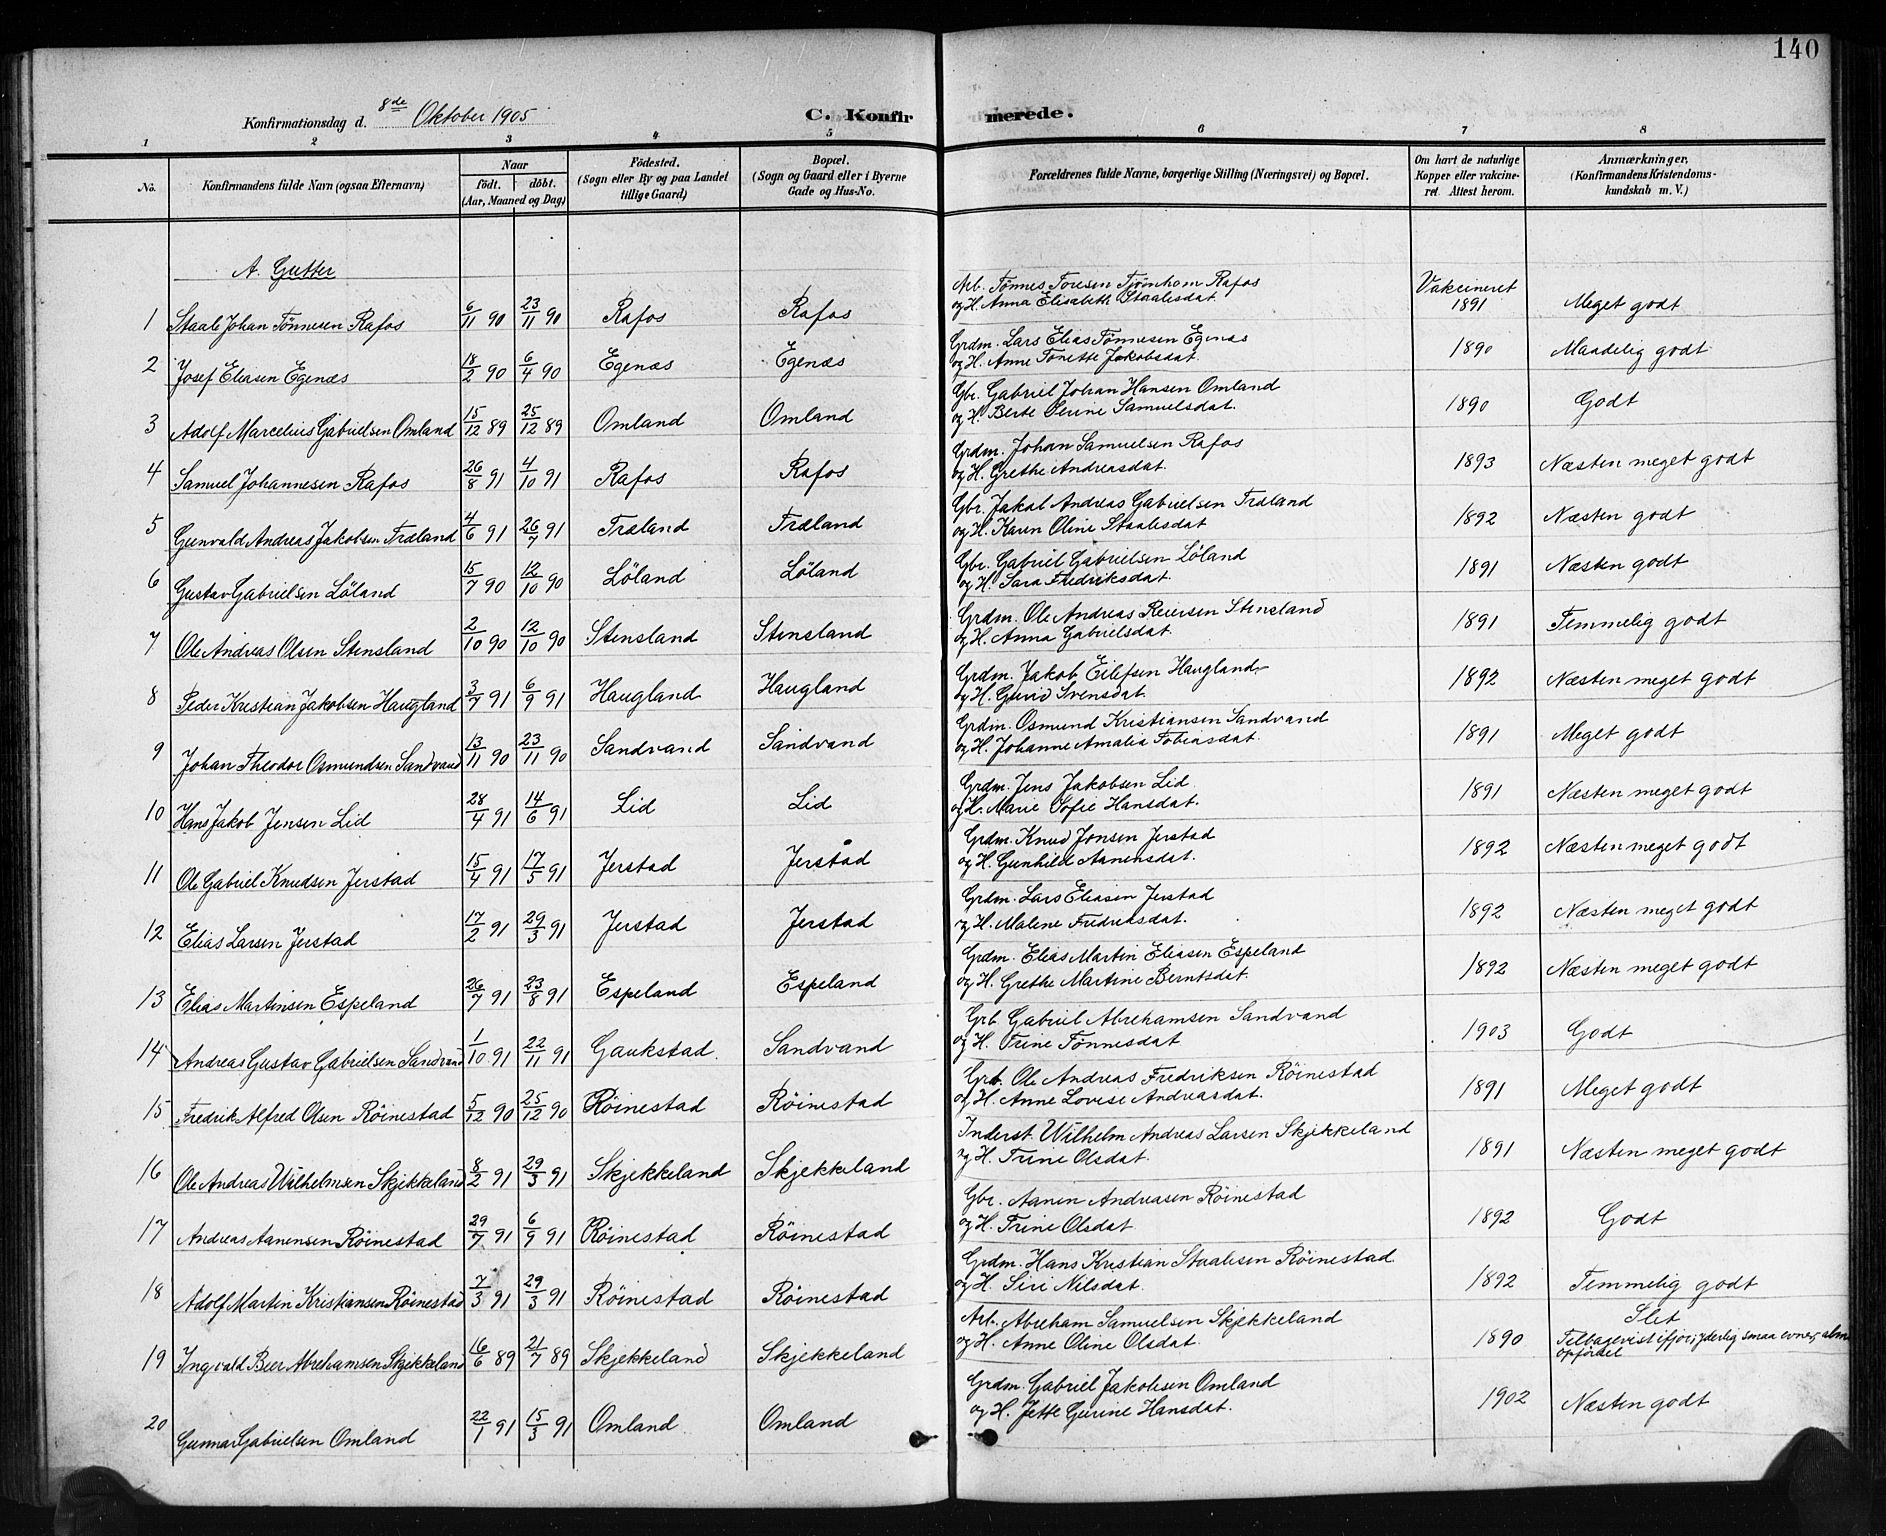 140
Konfirmationsdag d. 8de Oktober 1905
C. Konfirmerede.
1 2 3 4 5 6 7 8
No. Konfirmandens fulde Navn (ogsaa Efternavn) Naar födt. döbt. (Aar, Maaned og Dag) Födested. (Sogn eller By og paa Landet tillige Gaard) Bopæl. (Sogn og Gaard eller i Byerne Gade og Hus-No. Forældrenes fulde Navne, borgerlige Stilling (Næringsvei) og Bopæl. Om havt de naturlige Kopper eller vakcineret. Attest herom. Anmærkninger, (Konfirmandens Kristendomskundskab m. V.)
A. Gutter
1 Staale Johan Tönnesen Rafos 6/11 90 23/11 90 Rafos Rafos Arb. Tönnes Toresen Tjörnhom Rafos og H. Anna Elisabeth Staalesdat. Vakcineret 1891 Meget godt
2 Josef Eliasen Egenæs 18/2 90 6/4 90 Egenæs Egenæs Grdm. Lars Elias Tönnesen Egenæs og H. Anne Tonette Jakobsdat. 1890 Maadelig godt
3 Adolf Marcelius Gabrielsen Omland 15/12 89 25/12 89 Omland Omland Gbr. Gabriel Johan Hansen Omland og H. Berte Serine Samuelsdat. 1890 Godt
4 Samuel Johannesen Rafos 26/8 91 4/10 91 Rafos Rafos Grdm. Johan Samuelsen Rafos og H. Grethe Andreasdat. 1893 Næsten meget godt
5 Gunvald Andreas Jakobsen Træland 4/6 91 26/7 91 Træland Træland Gbr. Jakob Andreas Gabrielsen Træland og H. Karen Oline Staalesdat 1892 Næsten godt
6 Gustav Gabrielsen Löland 15/7 90 12/10 90 Löland Löland Gbr. Gabriel Gabrielsen Löland og H. Sara Fredriksdat. 1891 Næsten godt
7 Ole Andreas Olsen Stensland 2/10 90 12/10 90 Stensland Stensland Grdm. Ole Andreas Reiersen Stensland og H. Anna Gabrielsdat. 1891 Temmelig godt
8 Peder Kristian Jakobsen Haugland 3/7 91 6/9 91 Haugland Haugland Grdm. Jakob Eilefsen Haugland og H. Guvid Svensdat. 1892 Næsten meget godt
9 Johan Theodor Osmundsen Sandvand 13/11 90 23/11 90 Sandvand Sandvand Grdm. Osmund Kristiansen Sandvand og H. Johanne Amalia Tobiasdat. 1891 Meget godt
10 Hans Jakob Jensen Lid 28/4 91 14/6 91 Lid Lid Grdm. Jens Jakobsen Lid og H. Marie Sofie Hansdat. 1891 Næsten meget godt
11 Ole Gabriel Knudsen Jerstad 15/4 91 17/5 91 Jerstad Jerstad Grdm. Knud Jonsen Jerstad og H. Gunhilde Aanensdat. 1892 Næsten meget godt
12 Elias Larsen Jerstad 17/2 91 29/3 91 Jerstad Jerstad Grdm. Lars Eliasen Jerstad og H. Malene Fredriksdat. 1892 Næsten meget godt
13 Elias Martinsen Espeland 26/7 91 23/8 91 Espeland Espeland Grdm. Elias Martin Eliasen Espeland og H. Grethe Martine Berntsdat. 1892 Næsten meget godt
14 Andreas Gustav Gabrielsen Sandvand 1/10 91 22/11 91 Gaukstad. Sandvand Grb. Gabriel Abrehamsen Sandvand og H. Trine Tönnesdat. 1903 Godt
15 Fredrik Alfred Olsen Röinestad 5/12 90 25/12 90 Röinestad Röinestad Grb. Ole Andreas Fredriksen Röinestad og H. Anne Lovise Andreasdat. 1891 Meget godt
16 Ole Andreas Wilhelmsen Skjekkeland 8/2 91 29/3 91 Skjekkeland Skjekkeland Inderst. Wilhelm Andreas Larsen Skjekkeland og H. Trine Olsdat. 1891 Næsten meget godt
17 Andreas Aanensen Röinestad 29/7 91 6/9 91 Röinestad Röinestad Gbr. Aanen Andreasen Röinestad og H. Trine Olsdat. 1892 Godt
18 Adolf Martin Kristiansen Röinestad 7/3 91 29/3 91 Röinestad Röinestad Grdm. Hans Kristian Staalesen Röinestad og H. Siri Nilsdat. 1892 Temmelig godt
19 Ingvald Beer Abrehamsen Skjekkeland 16/6 89 21/7 89 Skjekkeland Skjekkeland Arb. Abreham Samuelsen Skjekkeland og H. Anne Oline Olsdat. 1890 Slet Tilbagevist ifjor; yderlig smaa evner,
20 Gunnar Gabrielsen Omland 22/1 91 15/3 91 Omland Omland Grdm. Gabriel Jakobsen Omland og H. Jette Gurine Hansdat. 1902 Næsten godt